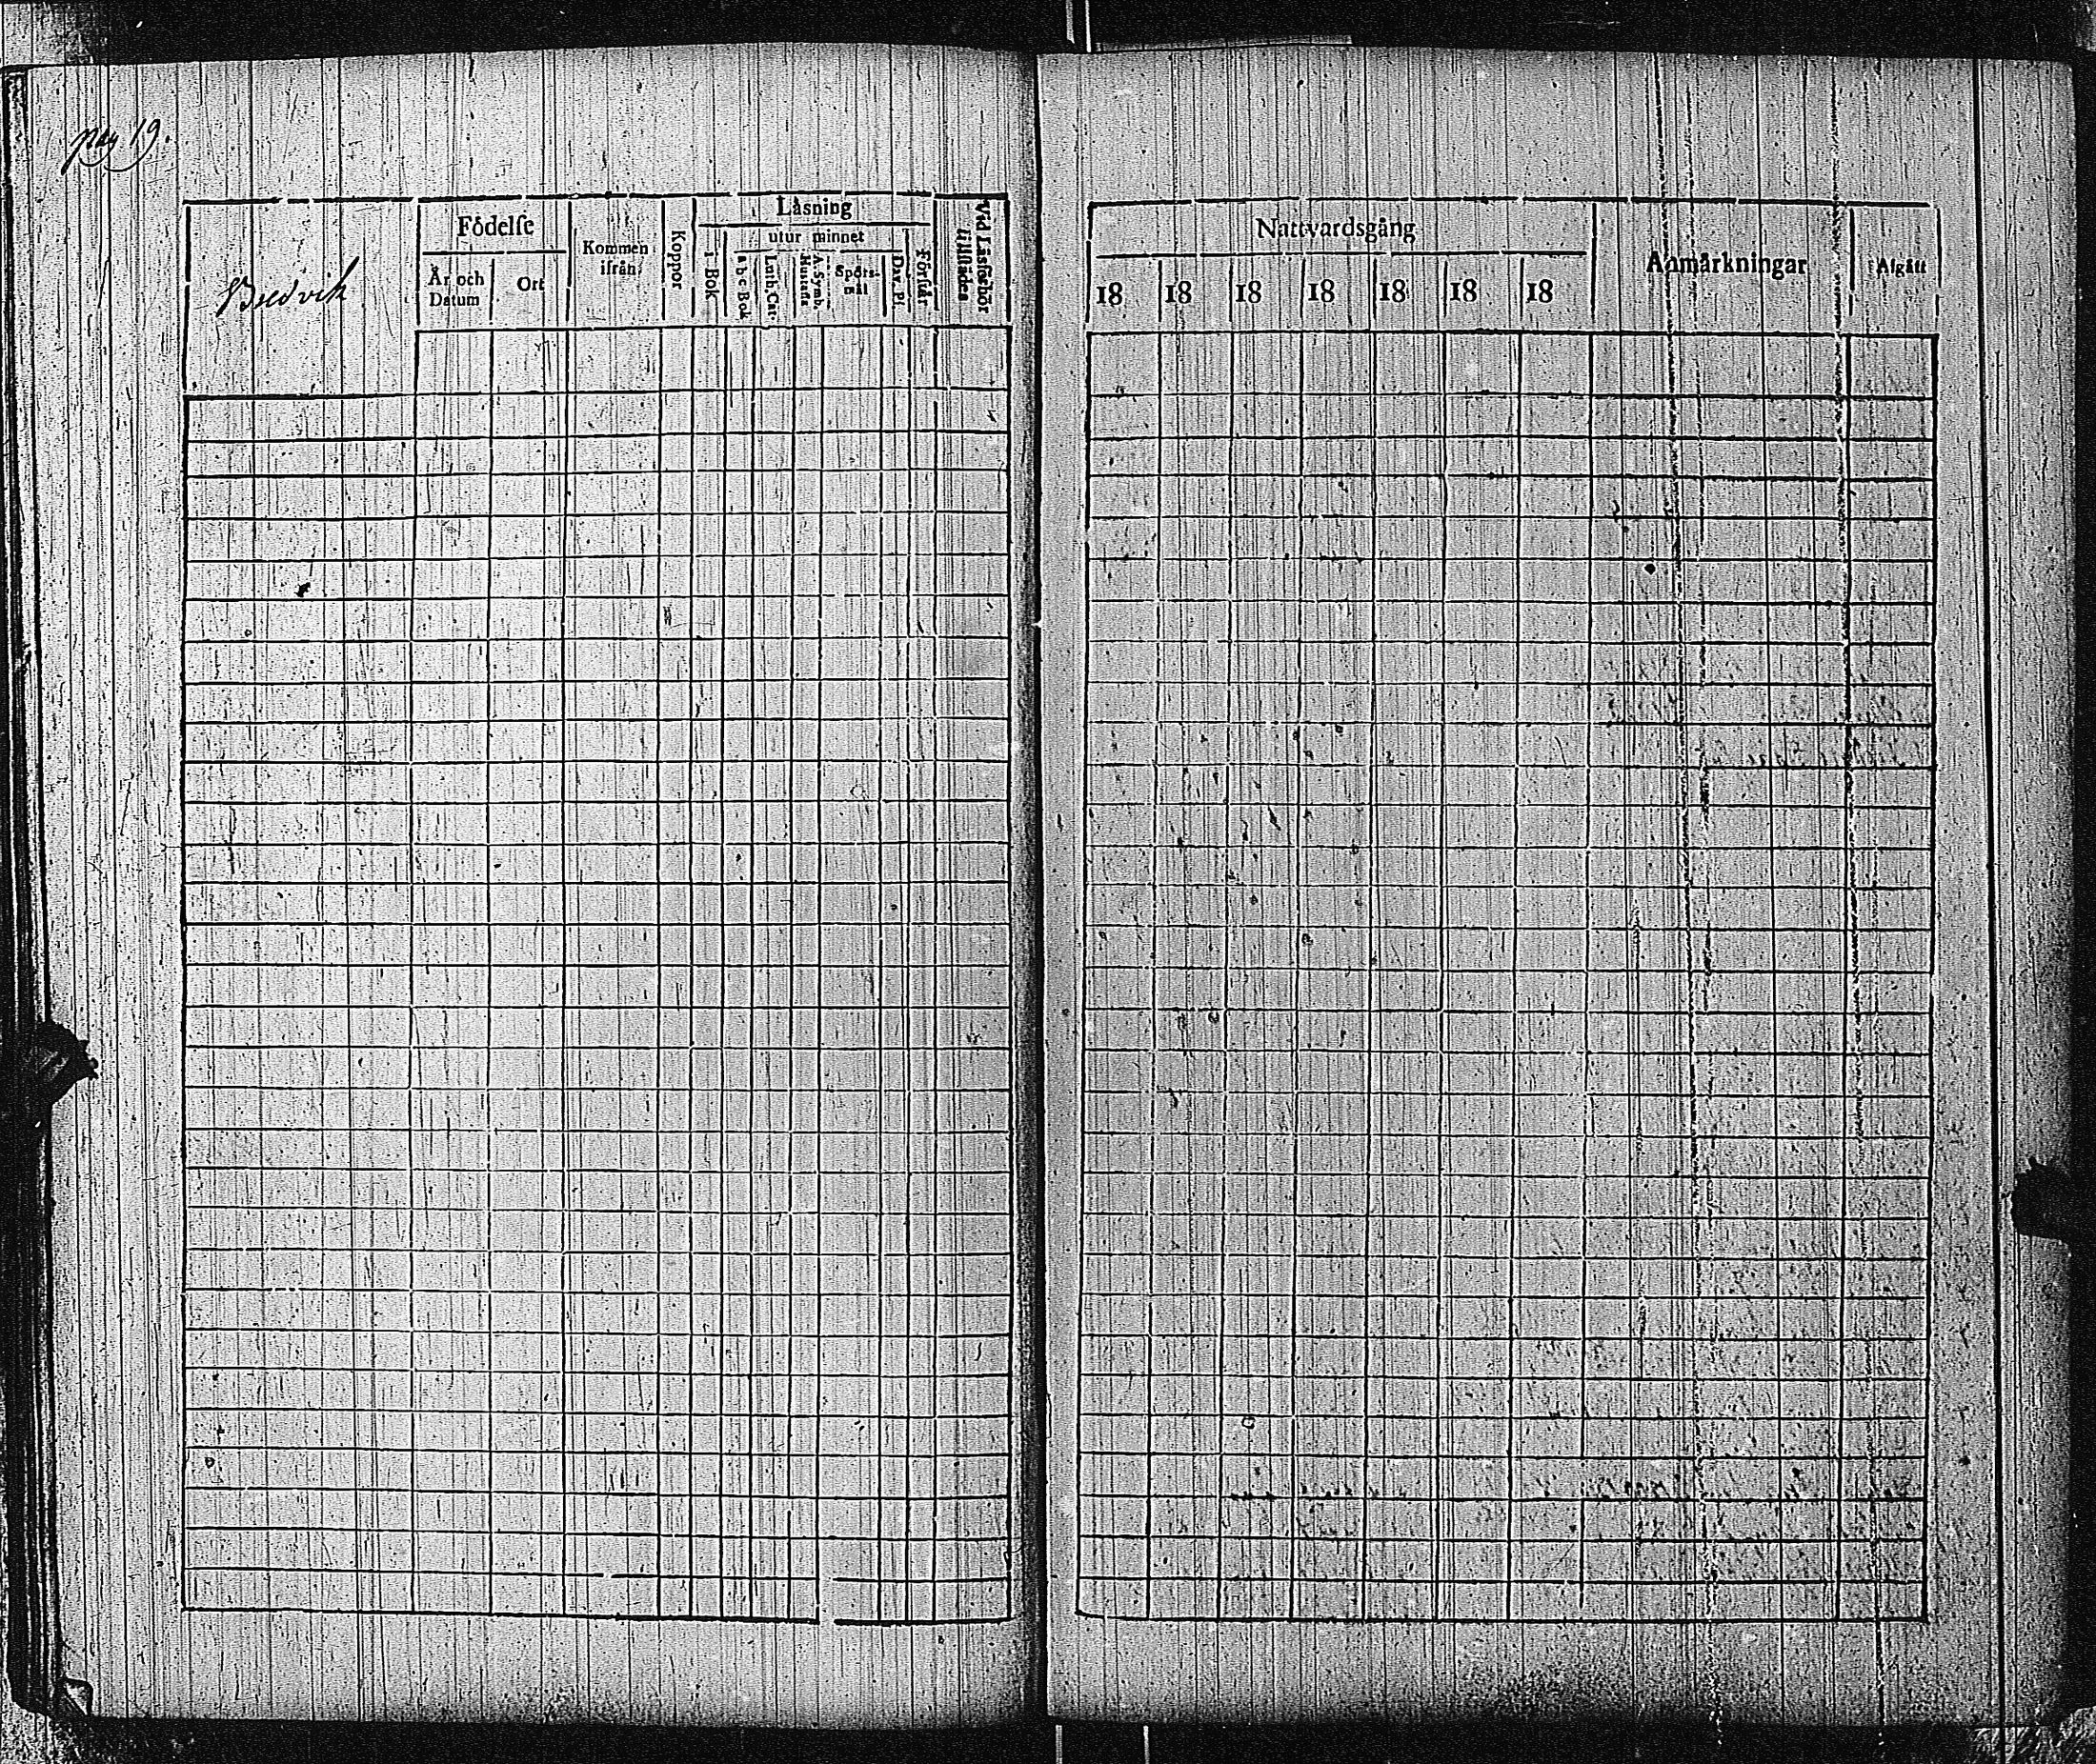 pag 19.
Bredvik
Födelse
År och
Datum
Ort
Kommen
ifrån
Koppor
Läsning
i Bok
utur minnet
a b c Bok
Luth. Cat.
A. Symb.
Hustafla
Spörs-
mål
Dav. Pf.
Förstår
Vid Läsförhör
tillstädes
Nattvardsgång
18 18 18 18 18 18 18
Anmärkningar
Afgått